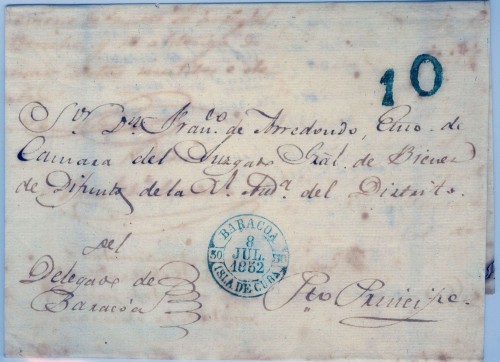 10
Sor. Dn. Franco. de Arredondo, Esno. de
Camara del Juzgado Gral. de Bienes
de Difuntos de la Rl. Auda. del Distrito.
BARACOA
8
JUL.
1852
30 30
ISLA DE CUBA
del
Delegado de
Baracoa
Pto. Principe.